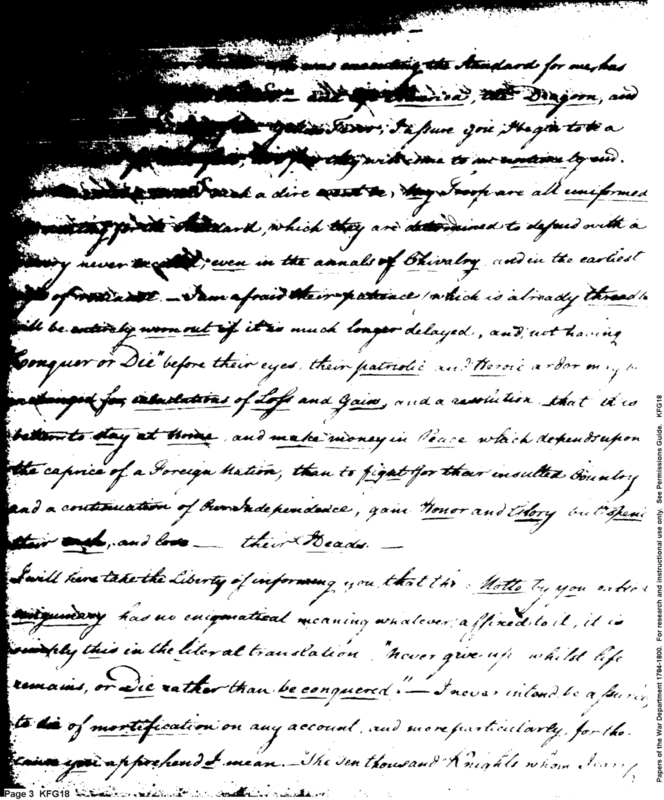 was executing the Standard for me, has
and America, the Dragon, and
Fever, I assure you, I begin to be a
they will come to an end.
such a dire my Troop are all uniformed
waiting for the Standard, which they are determined to defend with a
never even in the annals of Chivalry and in the earliest
of I am afraid their patience (which is already
will be entirely worn out if it is much longer delayed, and not having
Conquer or Die" before their eyes, their patriotic and Heroic ardor may be
exchanged for calculations of Loss and Gain, and a resolution that it is
better to stay at home and make money in Peace which depends upon
the caprice of a Foreign Nation, than to fight for their insulted Country
and a continuation of Our Independence, gain Honor and Glory but spend
their cash, and lose — their Heads. —
I will here take the Liberty of informing you that the Motto by you
has no enigmatical meaning whatever affixed to it, it is
simply this in the literal translation "never give up whilst life
remains, or Die rather than be conquered". — I never intend be assured
to die of mortification on any account, and more particularly for the
cause you apprehend I mean. — The ten thousand Knights whom
Page 3 KFG18
Papers of the War Department 1784-1800. For research and instructional use only. See Permissions Guide. KFG18